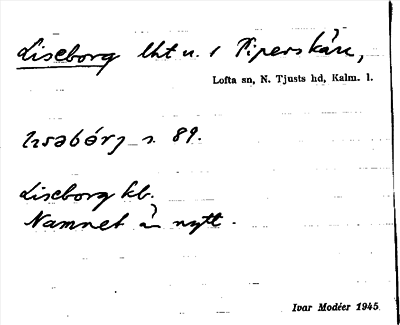 Liseborg lht u. 1 Piperskärr,
Lofta sn, N. Tjusts hd, Kalm. l.
s. 89.
Liseborg kb.
Namnet är nytt.
Ivar Modéer 1945